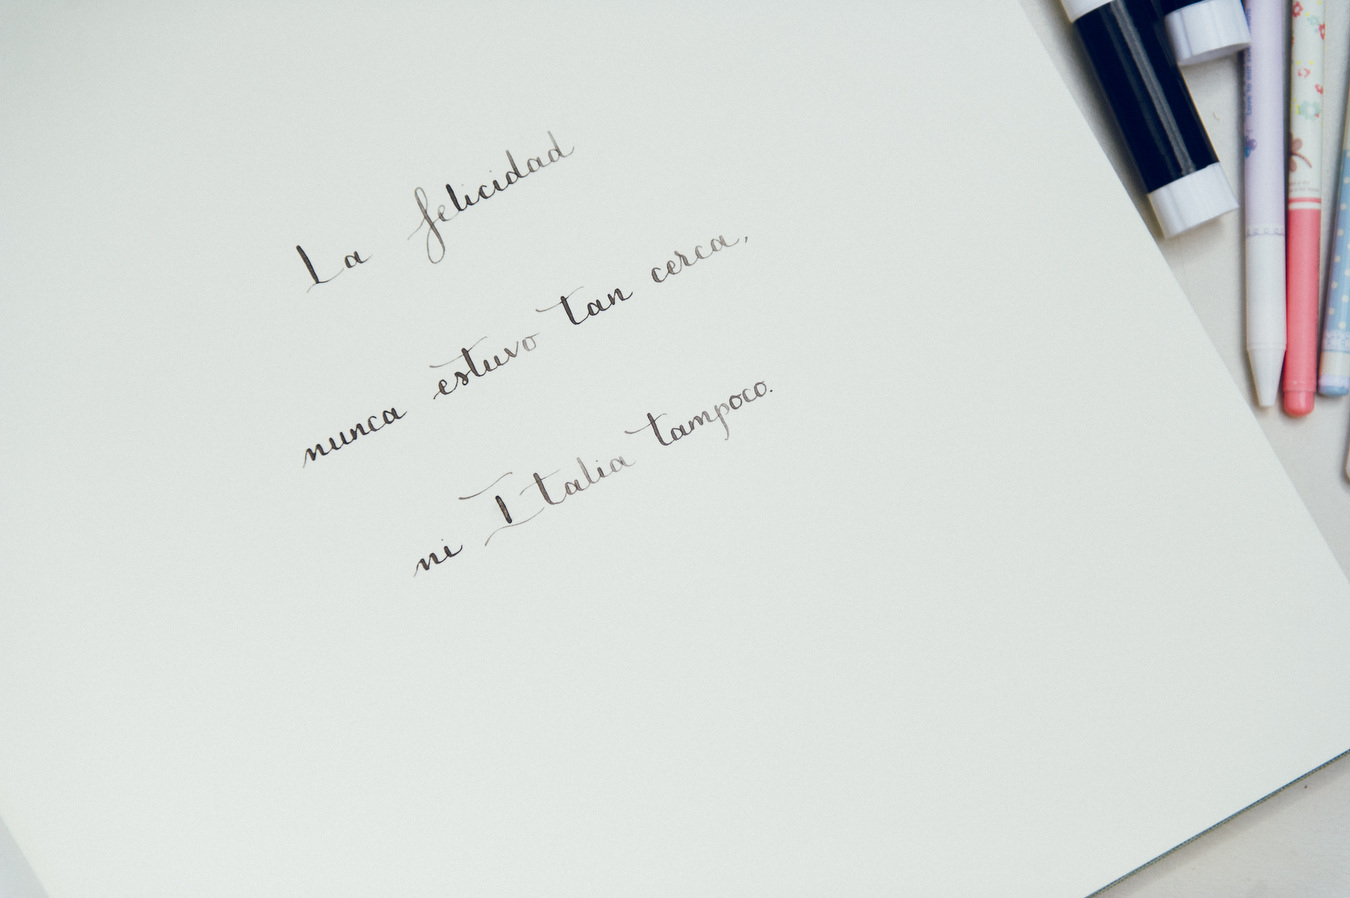 La felicidad
nunca estuvo tan cerca,
ni Italia tampoco.